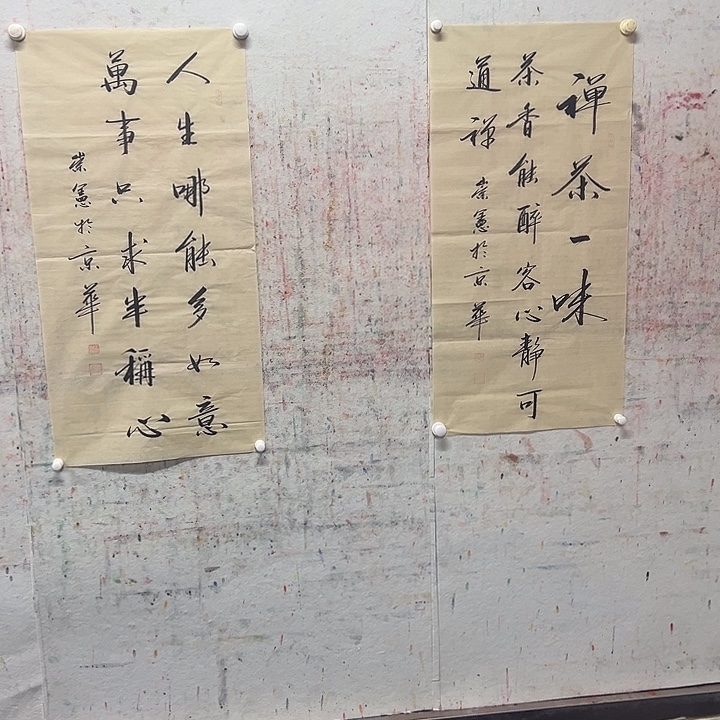 禅茶一味
茶香能醉客心静可
道禅
崇憲於京華
人生哪能多如意
萬事只求半稱心
崇憲於京華